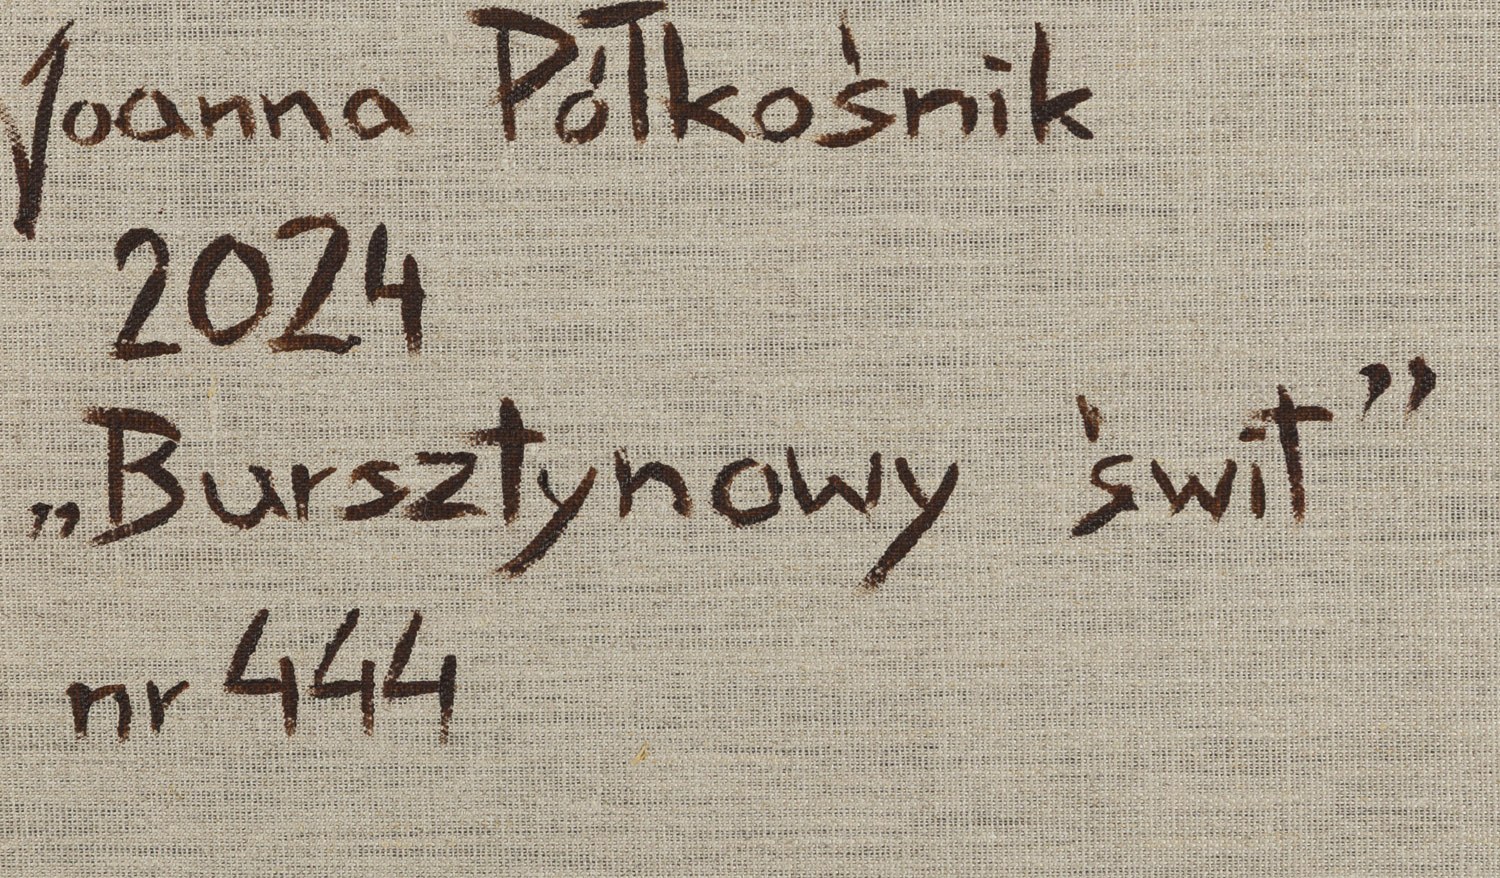 Joanna Półkośnik
2024
„Bursztynowy świt”
nr 444